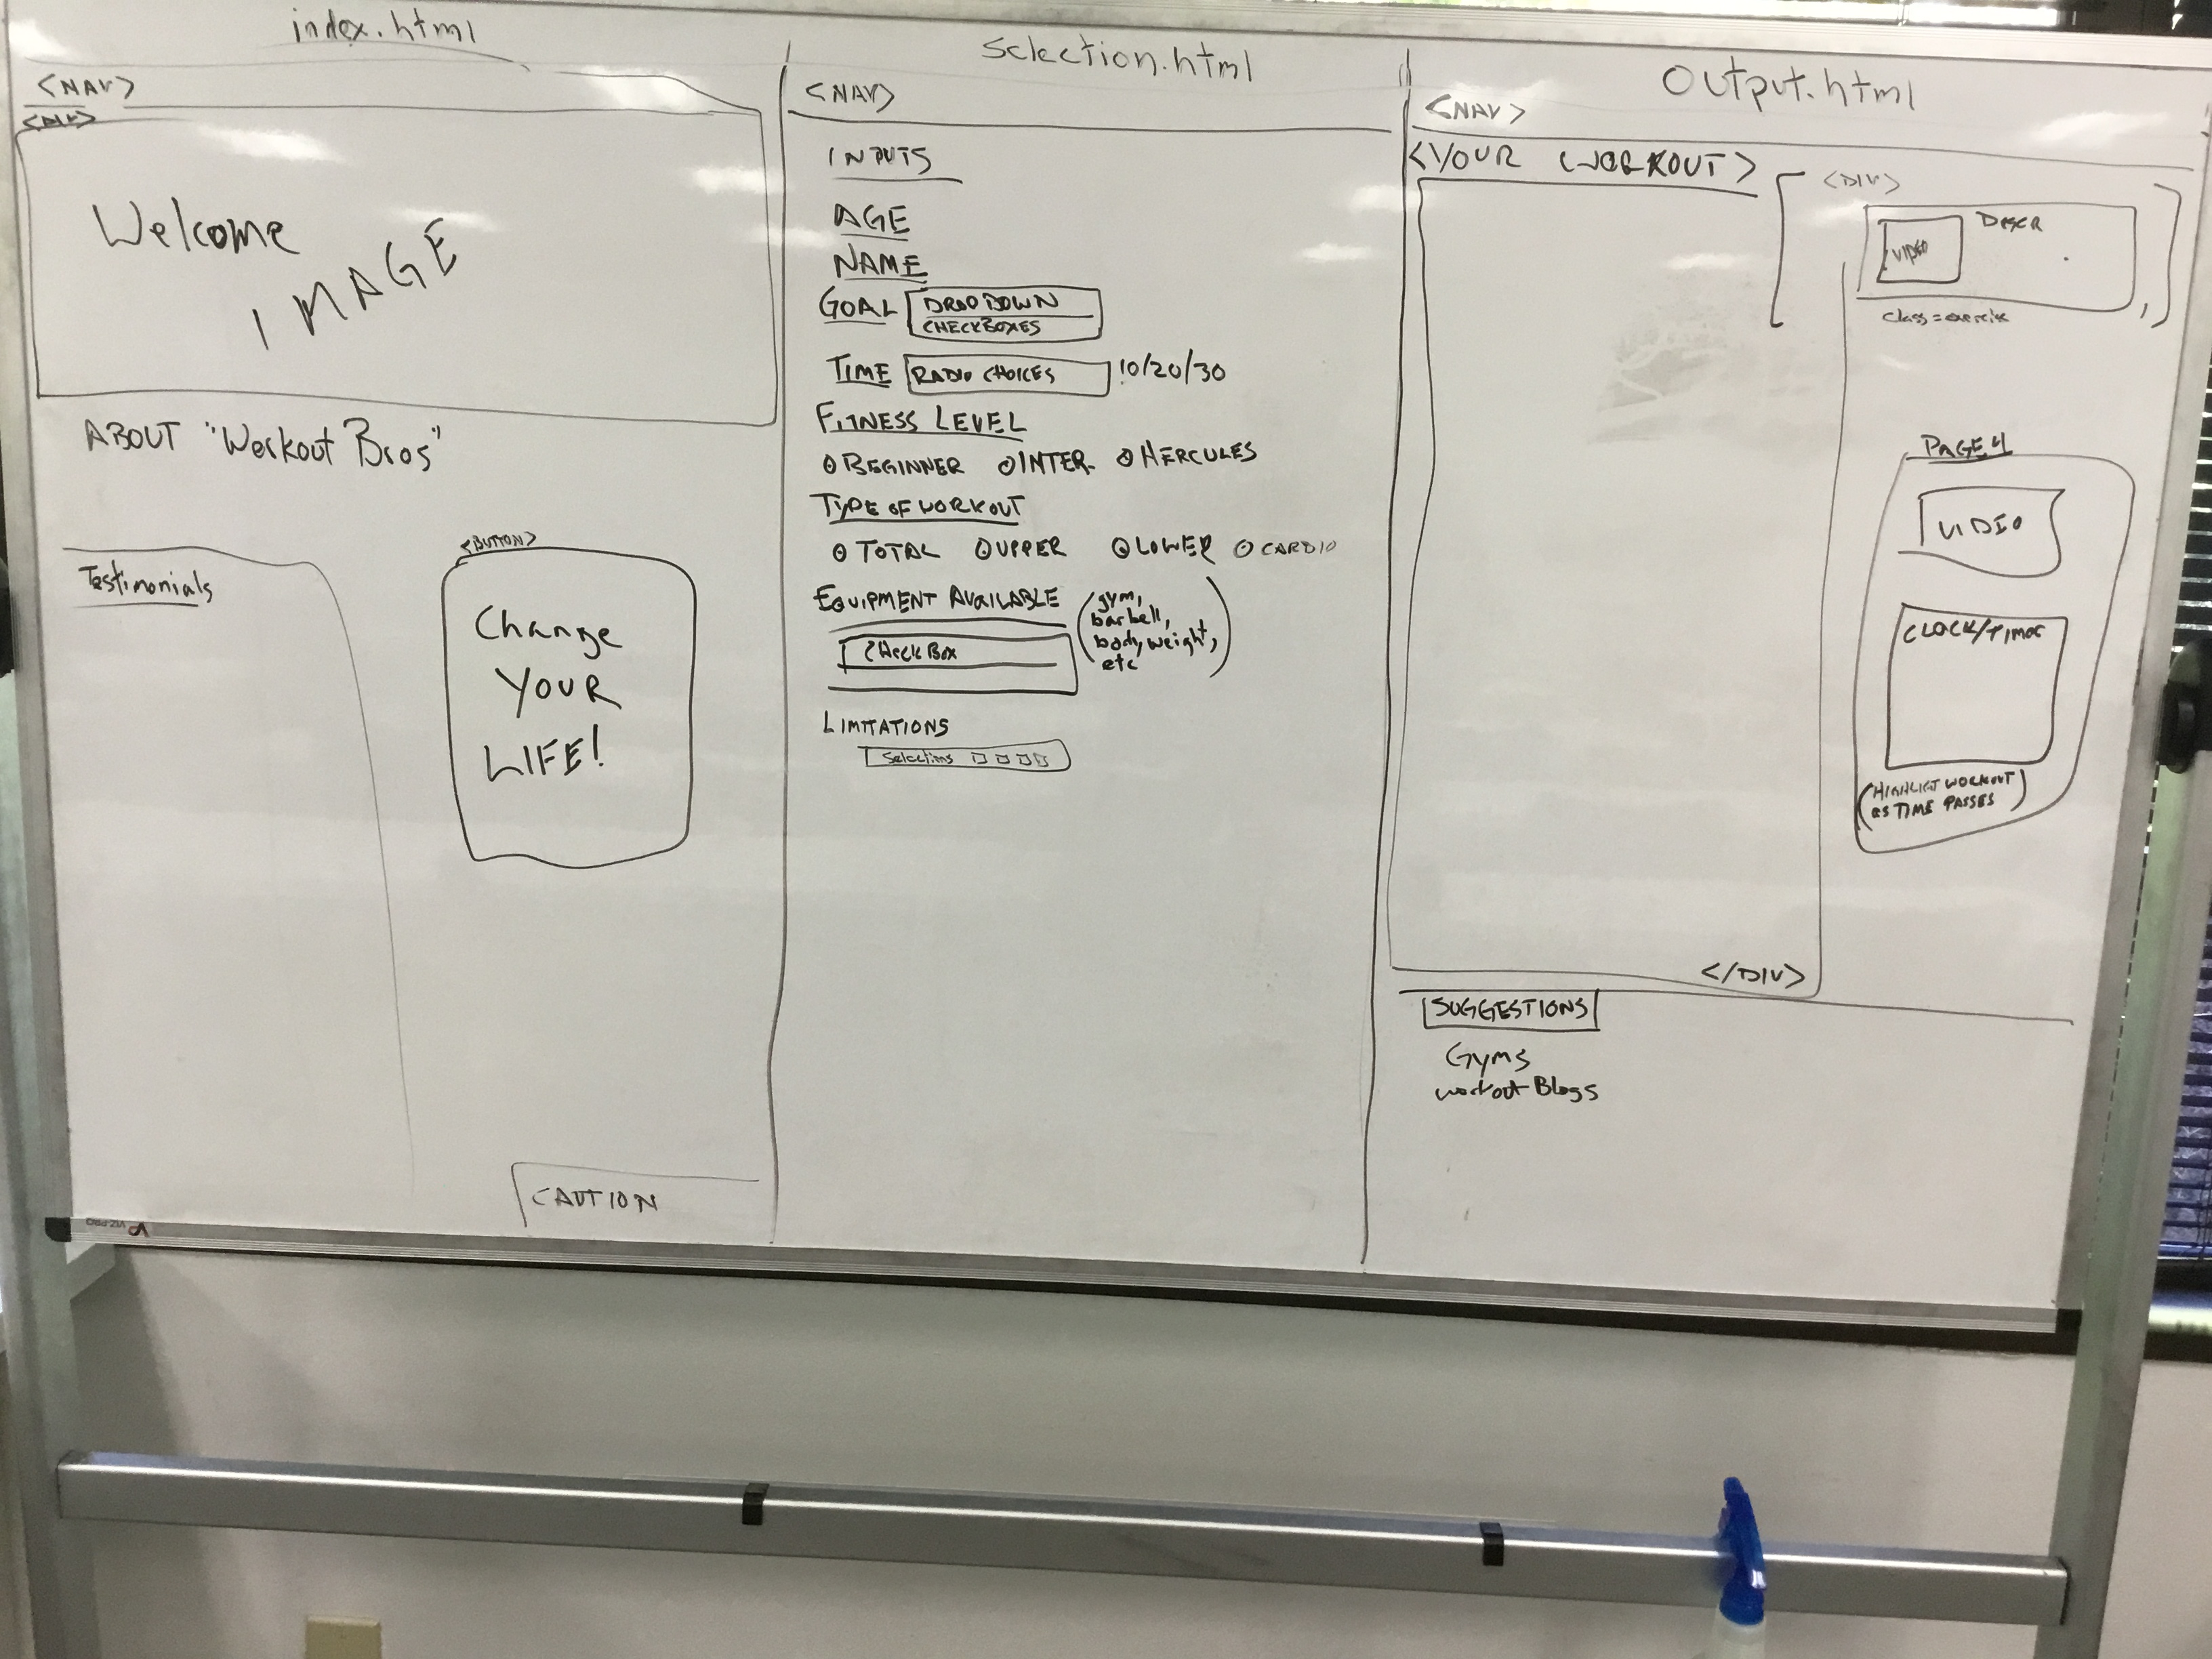 index.html
<NAV>
<DIV>
Welcome
IMAGE
ABOUT "Workout Bros"
Testimonials
<BUTTON>
Change
YOUR
LIFE!
CAUTION
Selection.html
<NAV>
INPUTS
AGE
NAME
GOAL DROPDOWN
CHECKBOXES
TIME RADIO CHOICES 10/20/30
FITNESS LEVEL
BEGINNER INTER. HERCULES
TYPE OF WORKOUT
TOTAL UPPER LOWER CARDIO
EQUIPMENT AVAILABLE
(gym,
barbell,
body, weight,
etc)
CHECK BOX
LIMITATIONS
Selections
Output.html
<NAV>
<YOUR WORKOUT>
<DIV>
VIDEO
DESCR
class=exercise
PAGE 4
VIDEO
CLOCK/TIMER
(HIGHLIGHT WORKOUT
AS TIME PASSES)
</DIV>
SUGGESTIONS
Gyms
workout Blogs